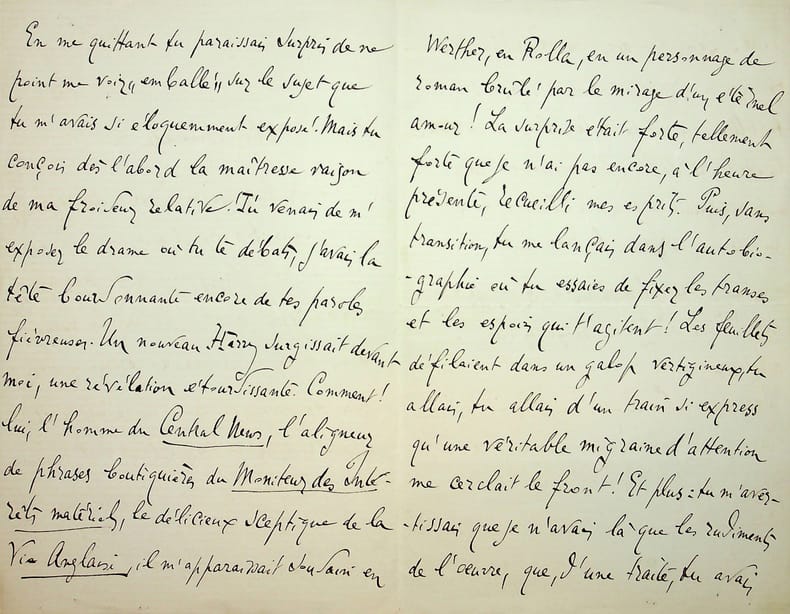 En me quittant tu paraissais surpris de ne
point me voir „emballé„ sur le sujet que
tu m'avais si éloquemment exposé! Mais tu
conçois dès l'abord la maîtresse raison
de ma froideur relative. Tu venais de m'
exposer le drame où tu te débats, j'avais la
tête bourdonnante encore de tes paroles
fiévreuses. Un nouveau Harry surgissait devant
moi, une révélation étourdissante. Comment!
lui, l'homme du Central News, l'aligneur
de phrases boutiquières du Moniteur des Inté-
rêts matériels, le délicieux sceptique de la
Vie Anglaise, il m'apparaissait soudain en
Werther, en Rolla, en un personnage de
roman brûlé par le mirage d'un éternel
amour! La surprise était forte, tellement
forte que je n'ai pas encore, à l'heure
présente, recueilli mes esprits. Puis, sans
transition, tu me lançais dans l'autobio-
-graphie où tu essaies de fixer les transes
et les espoirs qui t'agitent! Les feuillets
défilaient dans un galop vertigineux, tu
allais, tu allais d'un train si express
qu'une véritable migraine d'attention
me cerclait le front! Et plus: tu m'aver-
-tissais que je n'avais là que les rudiments
de l'œuvre, que, d'une traite, tu avais